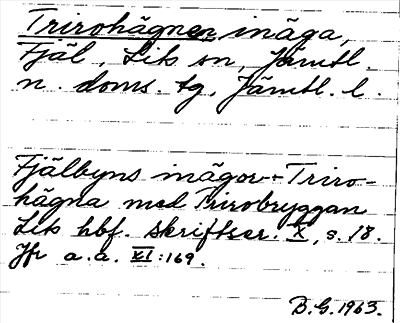 Trirohägnen, inäga,
Fjäl, Lits sn, Jämtl.
n. doms. tg, Jämtl. l.
Fjälbyns inägor - Triro-
hägna med Trirobryggan
Lits hbf. skriftser. X, s. 18.
Jfr a.a. XI:169.
B.G. 1963.